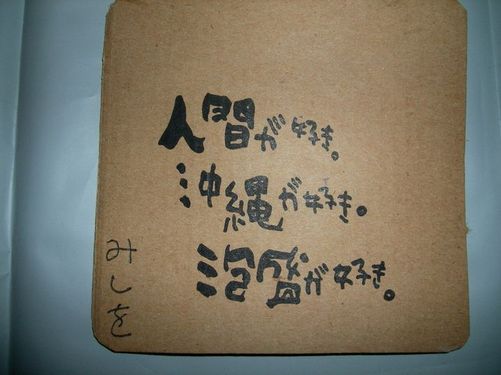 人間が好き。
沖縄が好き。
泡盛が好き。
みしを